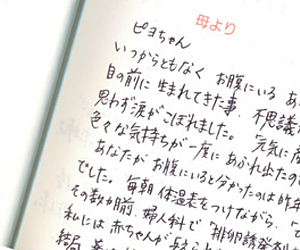 母より
ピヨちゃん
いつからともなく お腹にいる あ
目の前に 生まれてきた事、不思議
思わず涙がこぼれました。
色々な気持ちが一度にあふれ出たので
あなたが お腹にいると分かったのは昨年
でした。毎朝 体温表をつけながら、
その数か月前、婦人科で 排卵誘発剤
私には赤ちゃんが
結局